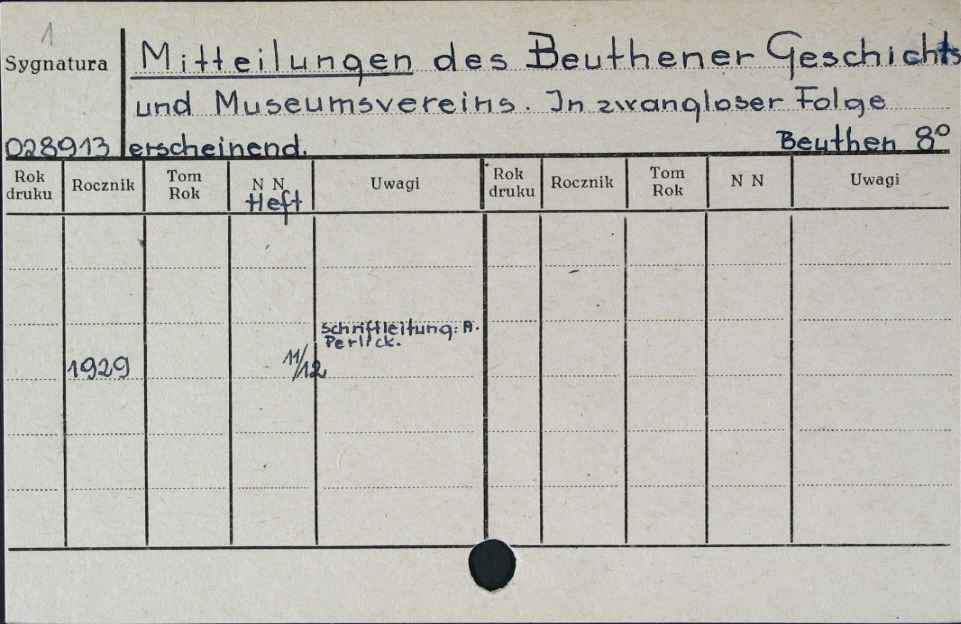 1
Sygnatura
Mitteilungen des Beuthener Geschichts
und Museumsvereins. In zwangloser Folge
028913 erscheinend. Beuthen 8°
Rok druku Rocznik Tom Rok N N Heft Uwagi Rok druku Rocznik Tom Rok N N Uwagi
Schriftleitung: A.
Perlick.
1929 11/12